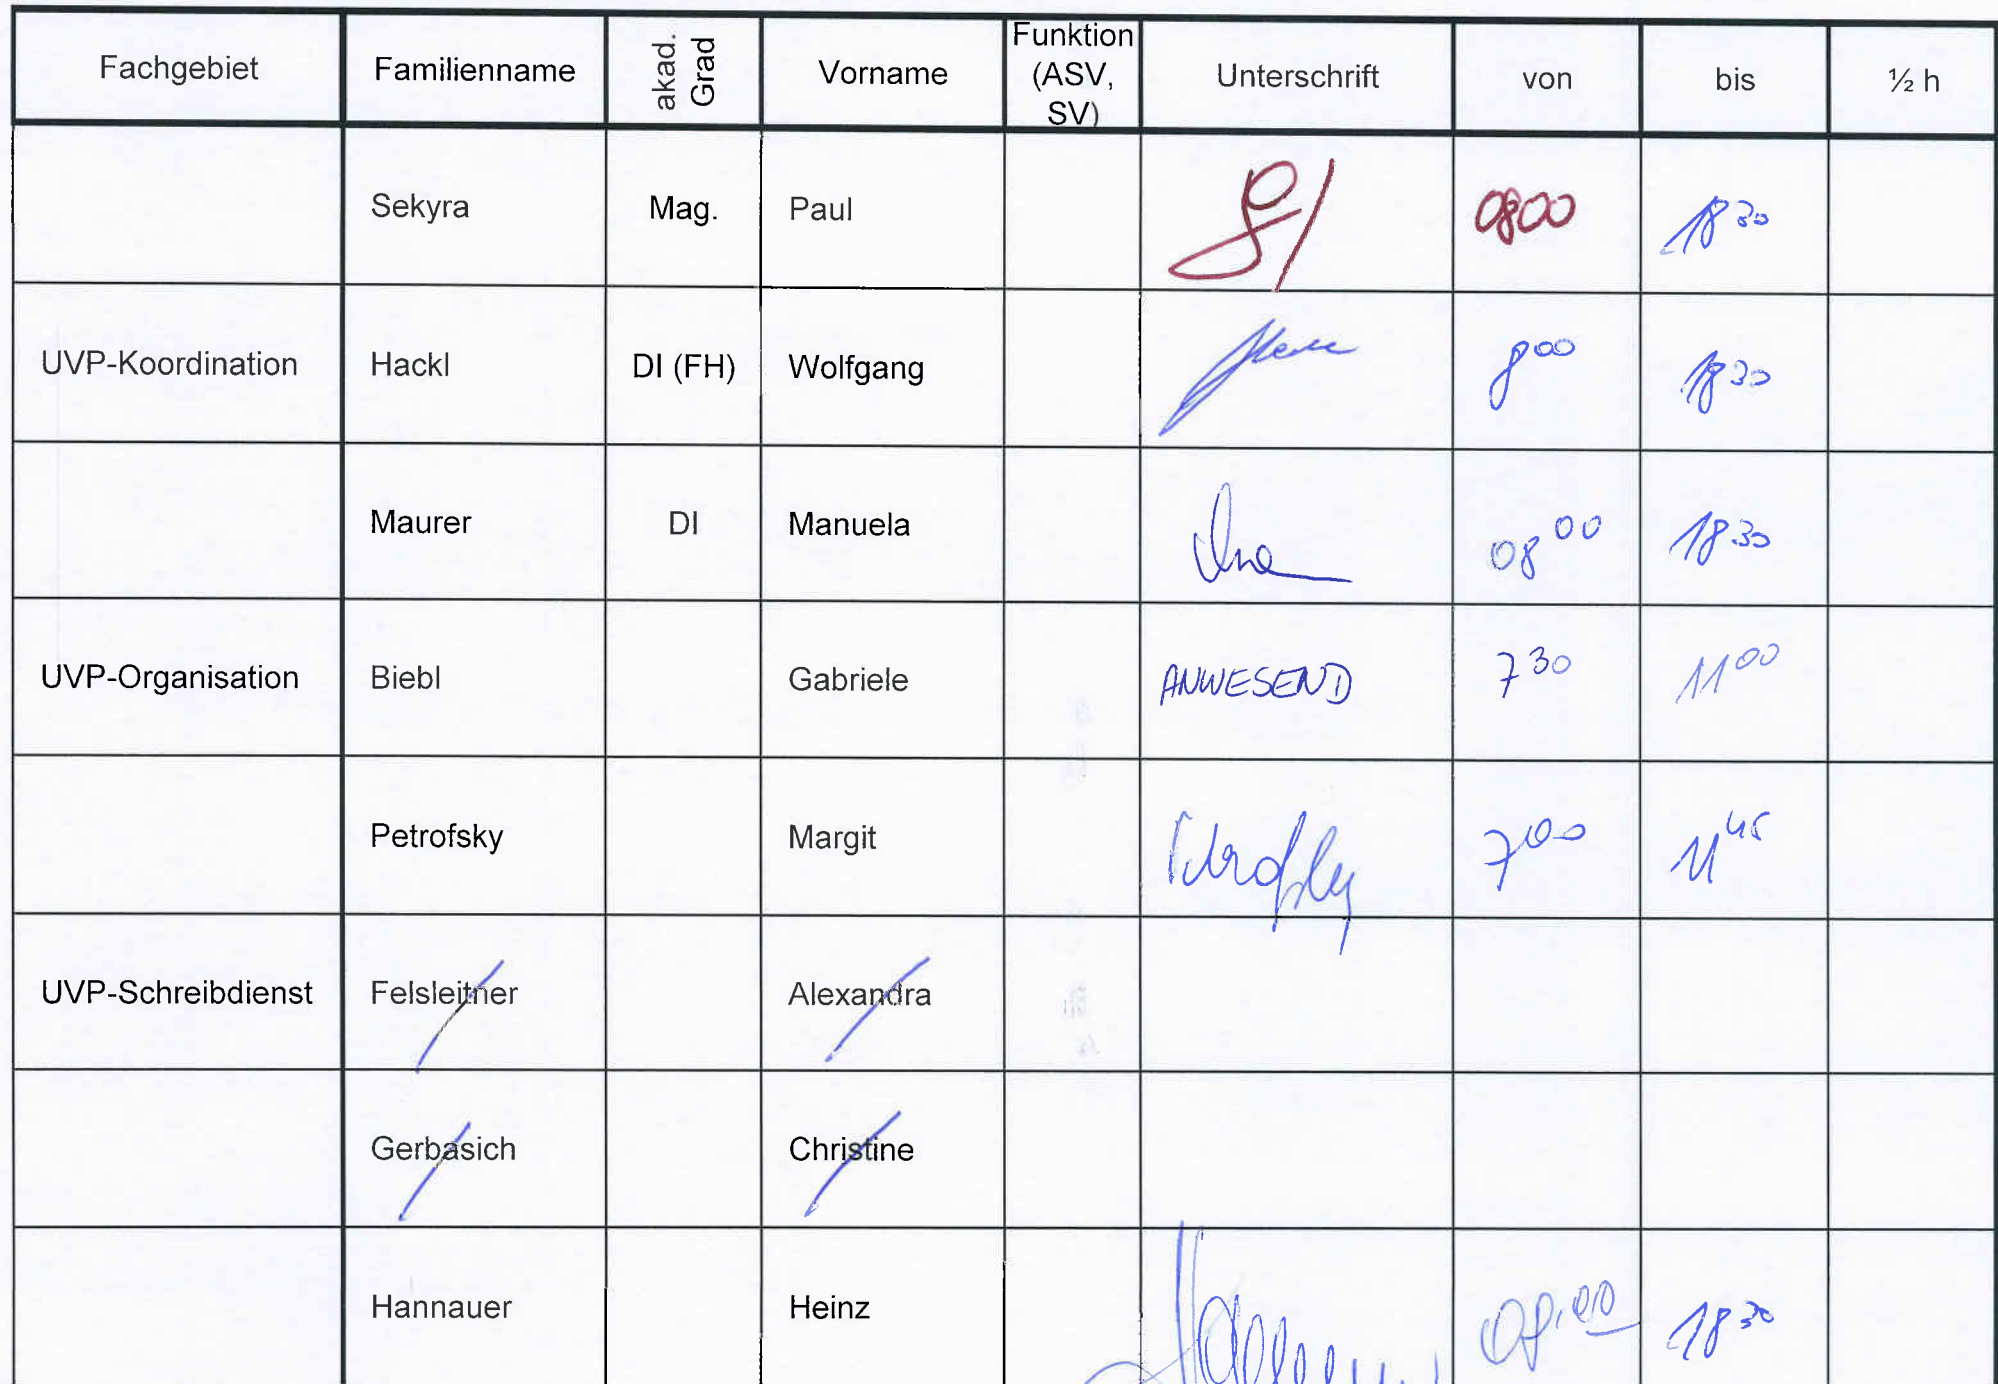 Fachgebiet Familienname akad. Grad Vorname Funktion (ASV, SV) Unterschrift von bis ½ h
Sekyra Mag. Paul 0800 18 30
UVP-Koordination Hackl DI (FH) Wolfgang 8 00 18 30
Maurer DI Manuela 08 00 18 30
UVP-Organisation Biebl Gabriele ANWESEND 7 30 11 00
Petrofsky Margit 7 00 11 45
UVP-Schreibdienst Felsleitner Alexandra
Gerbasich Christine
Hannauer Heinz 08.00 18 30